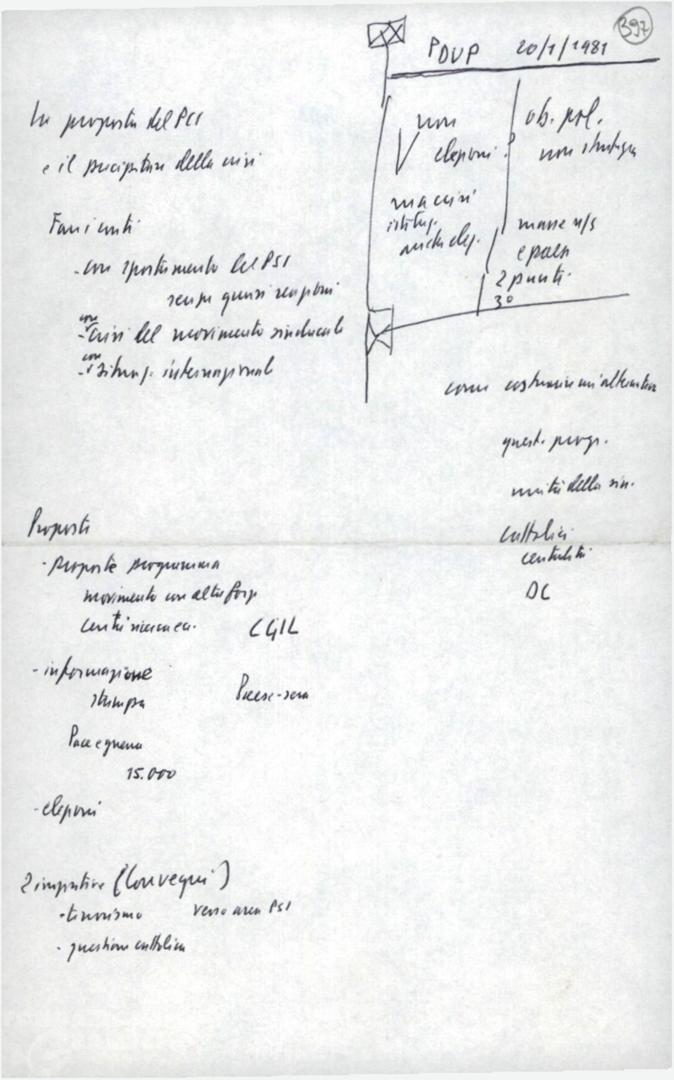 397
PDUP 20/1/1981
La proposta del PCI
e il precipitare della crisi
Fare i conti
- con spostamento del PSI
senza grossi reazioni
con
- crisi del movimento sindacale
con
- situaz. internazionale
non
elezioni?
ma crisi
istituz.
anche elez.
ob. pol.
non strategia
masse n/s
e paesi
2 punti.
3°
come costruire un'alternativa
quest. progr.
unità della sin.
cattolici
centralità
DC
Proposte
- proposte programma
movimento con altre forze
CGIL
- informazione
stampa Paese-sera
Pace e guerra
15.000
- elezioni
2 iniziative (Convegni)
- terrorismo verso area PSI
- questione cattolica